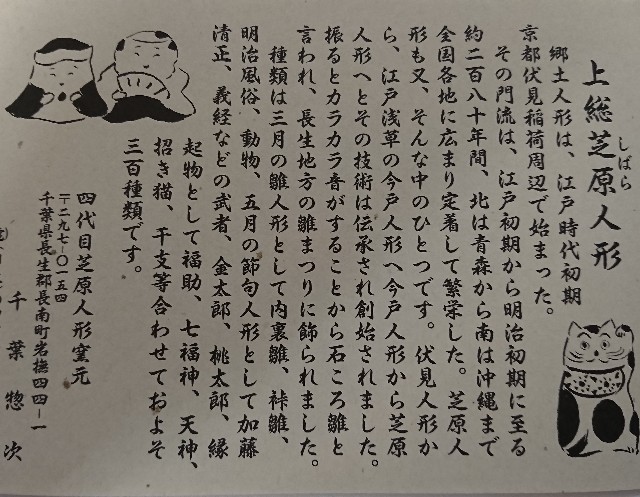 上総芝原人形
しばら
郷土人形は、江戸時代初期
京都伏見稲荷周辺で始まった。
その門流は、江戸初期から明治初期に至る
約二百八十年間、北は青森から南は沖縄まで
全国各地に広まり定着して繁栄した。芝原人
形も又、そんな中のひとつです。伏見人形か
ら、江戸浅草の今戸人形へ今戸人形から芝原
人形へとその技術は伝承され創始されました。
振るとカラカラ音がすることから石ころ雛と
言われ、長生地方の雛まつりに飾られました。
種類は三月の雛人形として内裏雛、裃雛、
明治風俗、動物、五月の節句人形として加藤
清正、義経などの武者、金太郎、桃太郎、縁
起物として福助、七福神、天神、
招き猫、干支等合わせておよそ
三百種類です。
四代目芝原人形窯元
〒二九七-〇一五四
千葉県長生郡長南町岩撫四四-一
千葉惣次